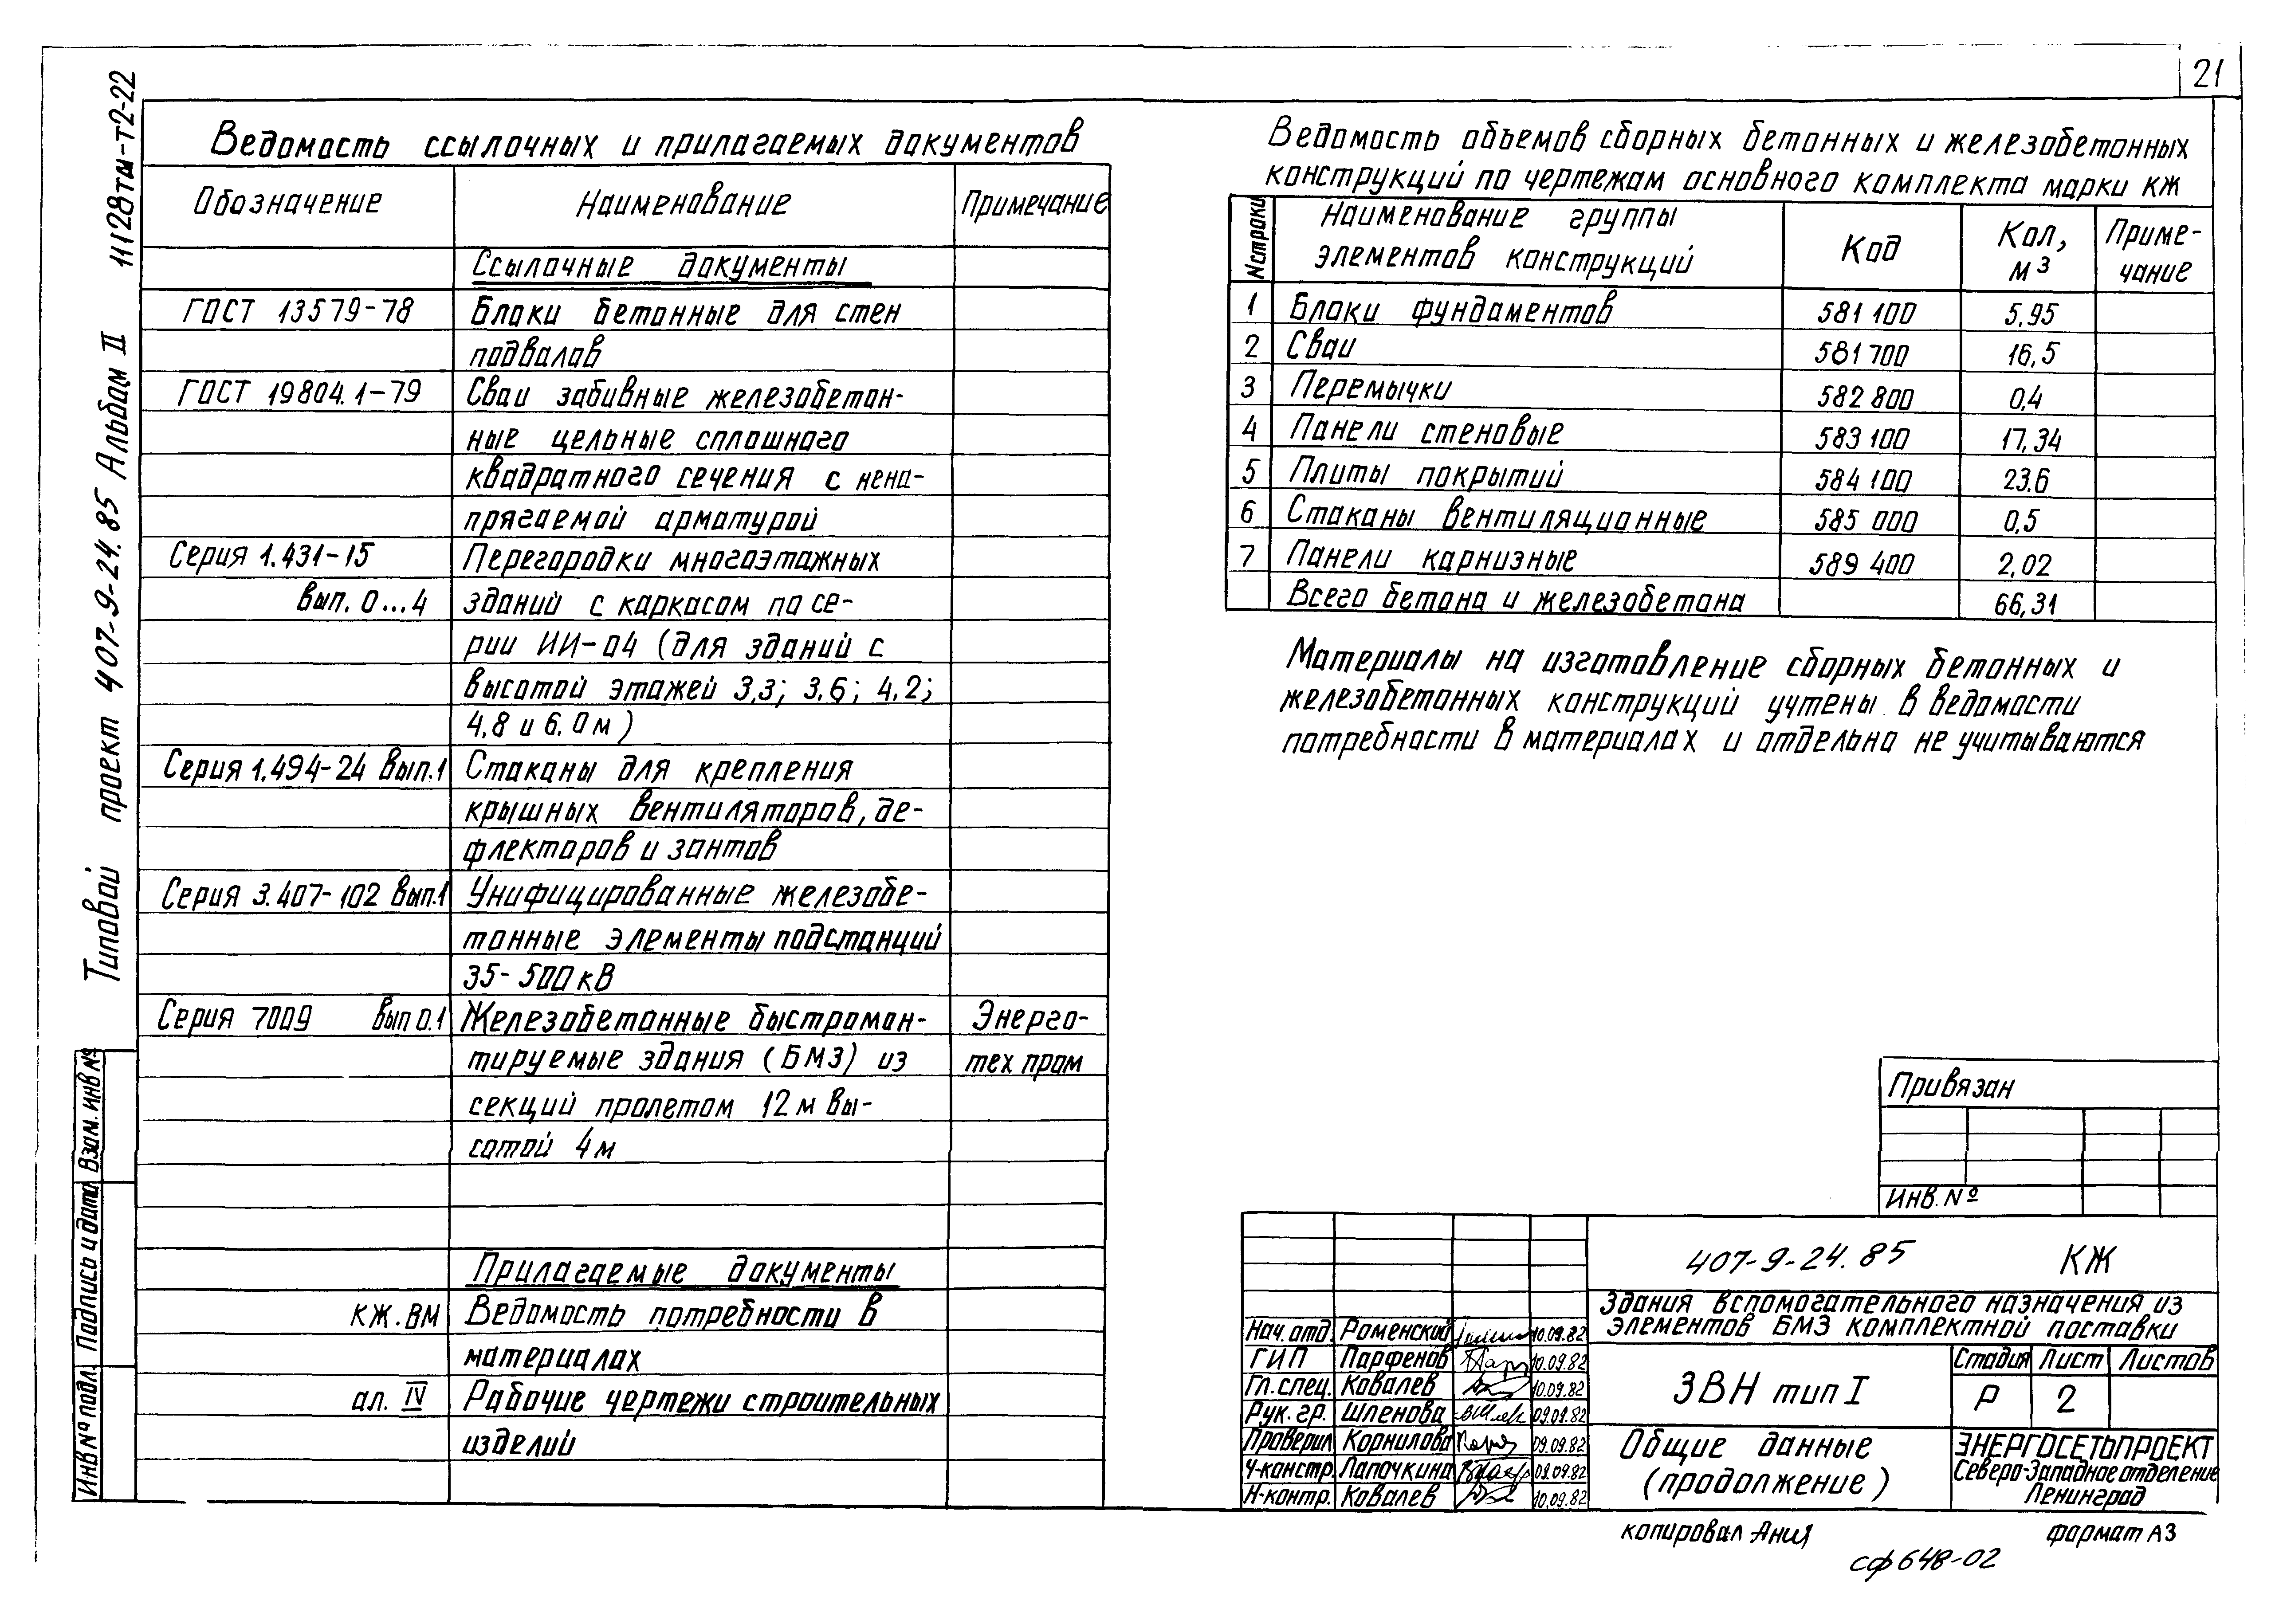 21
Типовой проект 407-9-24.85 Альбом II 11128тм-т2-22
Ведомость ссылочных и прилагаемых документов
Обозначение Наименование Примечание
Ссылочные документы
ГОСТ 13579-78 Блоки бетонные для стен
подвалов
ГОСТ 19804.1-79 Сваи забивные железобетон-
ные цельные сплошного
квадратного сечения с нена-
прягаемой арматурой
Серия 1.431-15 Перегородки многоэтажных
вып. 0...4 зданий с каркасом по се-
рии ИИ-04 (для зданий с
высотой этажей 3,3; 3.6; 4.2;
4,8 и 6.0м)
Серия 1.494-24 вып.1 Стаканы для крепления
крышных вентиляторов, де-
флекторов и зонтов
Серия 3.407-102 вып.1 Унифицированные железобе-
тонные элементы подстанций
35-500кВ
Серия 7009 вып 0.1 Железобетонные быстромон- Энерго-
тируемые здания (БМЗ) из тех пром
секций пролетом 12м вы-
сотой 4м
Прилагаемые документы
КЖ.ВМ Ведомость потребности в
материалах
ал. IV Рабочие чертежи строительных
изделий
Ведомость объемов сборных бетонных и железобетонных
конструкций по чертежам основного комплекта марки КЖ
Nстроки Наименование группы элементов конструкций Код Кол, м3 Приме-чание
1 Блоки фундаментов 581 100 5,95
2 Сваи 581 700 16,5
3 Перемычки 582 800 0,4
4 Панели стеновые 583 100 17,34
5 Плиты покрытий 584 100 23.6
6 Стаканы вентиляционные 585 000 0,5
7 Панели карнизные 589 400 2,02
Всего бетона и железобетона 66,31
Материалы на изготовление сборных бетонных и
железобетонных конструкций учтены в ведомости
потребности в материалах и отдельно не учитываются
Привязан
Инв.№
407-9-24.85 КЖ
Здания вспомогательного назначения из
элементов БМЗ комплектной поставки
Нач.отд. Роменский 10.09.82
ГИП Парфенов 10.09.82
Гл.спец. Ковалев 10.09.82
Рук.гр. Шленова 09.09.82
Проверил Корнилова 09.09.82
Ч-констр. Лапочкина 09.09.82
Н-контр. Ковалев 10.09.82
ЗВН тип I
Стадия Лист Листов
Р 2
Общие данные
(продолжение)
ЭНЕРГОСЕТЬПРОЕКТ
Северо-Западное отделение
Ленинград
Взам. инв №
Подпись и дата
Инв № подл.
копировал Ания формат А3
сф 648-02